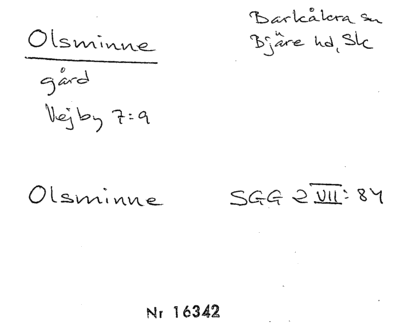 Olsminne
Barkåkra sn
Bjäre hd, Sk
gård
Vejby 7:9
Olsminne
SGG 2 VII: 84
Nr 16342